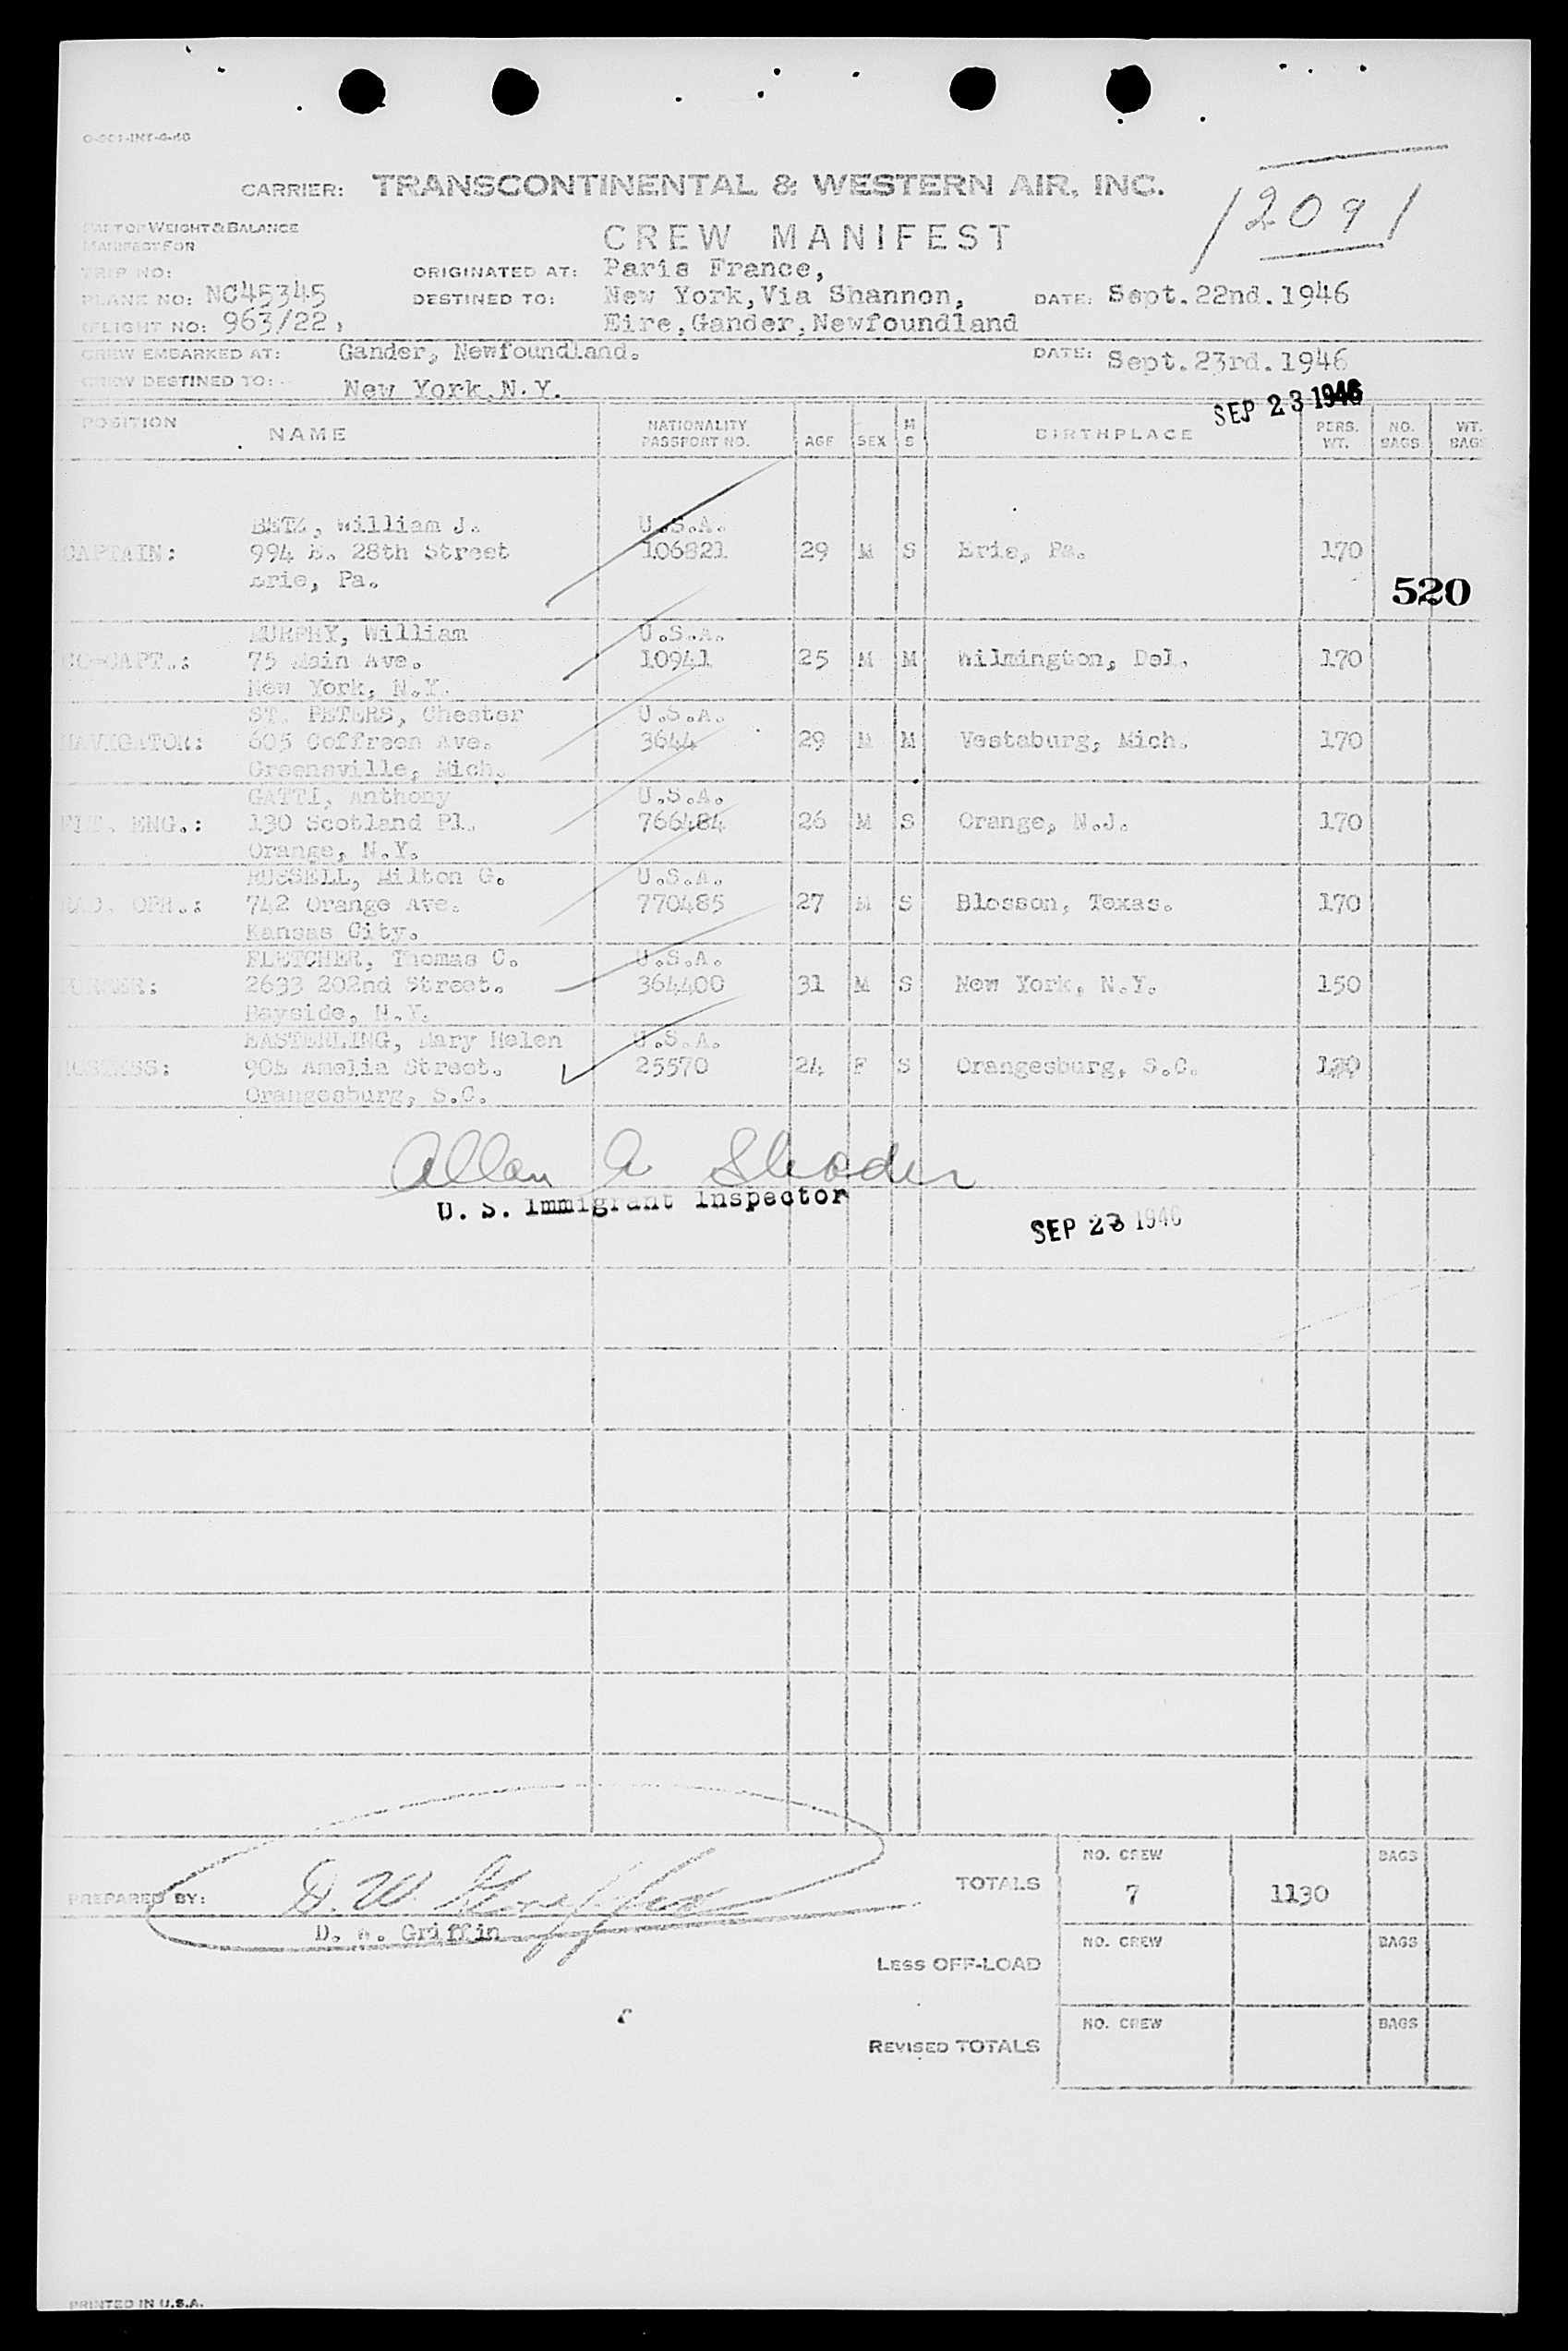 O-801-INT-6-46
CARRIER: TRANSCONTINENTAL & WESTERN AIR, INC.
12091
PART OF WEIGHT & BALANCE
MANIFEST FOR
CREW MANIFEST
TRIP NO:
ORIGINATED AT: Paris France,
PLANE NO: NC45345
DESTINED TO: New York,Via Shannon,
DATE: Sept.22nd.1946
(FLIGHT NO: 963/22,
Eire,Gander,Newfoundland
CREW EMBARKED AT: Gander, Newfoundland.
DATE: Sept.23rd.1946
CREW DESTINED TO: New York,N.Y.
SEP 23 1946
POSITION NAME NATIONALITY PASSPORT NO. AGE SEX M S BIRTHPLACE PERS. WT. NO. BAGS WT. BAGS
BETZ, William J. U.S.A.
CAPTAIN: 994 E. 28th Street 106821 29 M S Erie, Pa. 170
Erie, Pa.
520
MURPHY, William U.S.A.
CO-CAPT.: 75 Main Ave. 10941 25 M M Wilmington, Del. 170
New York, N.Y.
ST. PETERS, Chester U.S.A.
NAVIGATOR: 605 Coffreen Ave. 3644 29 M M Vestaburg, Mich. 170
Greensville, Mich.
GATTI, Anthony U.S.A.
FLT. ENG.: 130 Scotland Pl. 766484 26 M S Orange, N.J. 170
Orange, N.Y.
RUSSELL, Milton G. U.S.A.
RAD. OPR.: 742 Orange Ave. 770485 27 M S Blosson, Texas. 170
Kansas City.
FLETCHER, Thomas C. U.S.A.
PURSER: 2633 202nd Street. 364400 31 M S New York, N.Y. 150
Bayside, N.Y.
EASTERLING, Mary Helen U.S.A.
HOSTESS: 905 Amelia Street. 25570 24 F S Orangesburg, S.C. 130
Orangesburg, S.C.
Allan A
U. S. Immigrant Inspector
SEP 23 1946
PREPARED BY: D. W. Griffin
D. W. Griffin
TOTALS NO. CREW 7 1130 BAGS
LESS OFF-LOAD NO. CREW BAGS
REVISED TOTALS NO. CREW BAGS
PRINTED IN U.S.A.